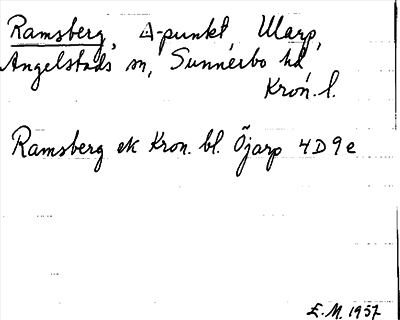 Ramsberg, Δ-punkt, Ularp,
Angelstads sn, Sunnerbo hd
Kron. l.
Ramsberg ek Kron. bl. Öjarp 4D9e
E.M. 1957